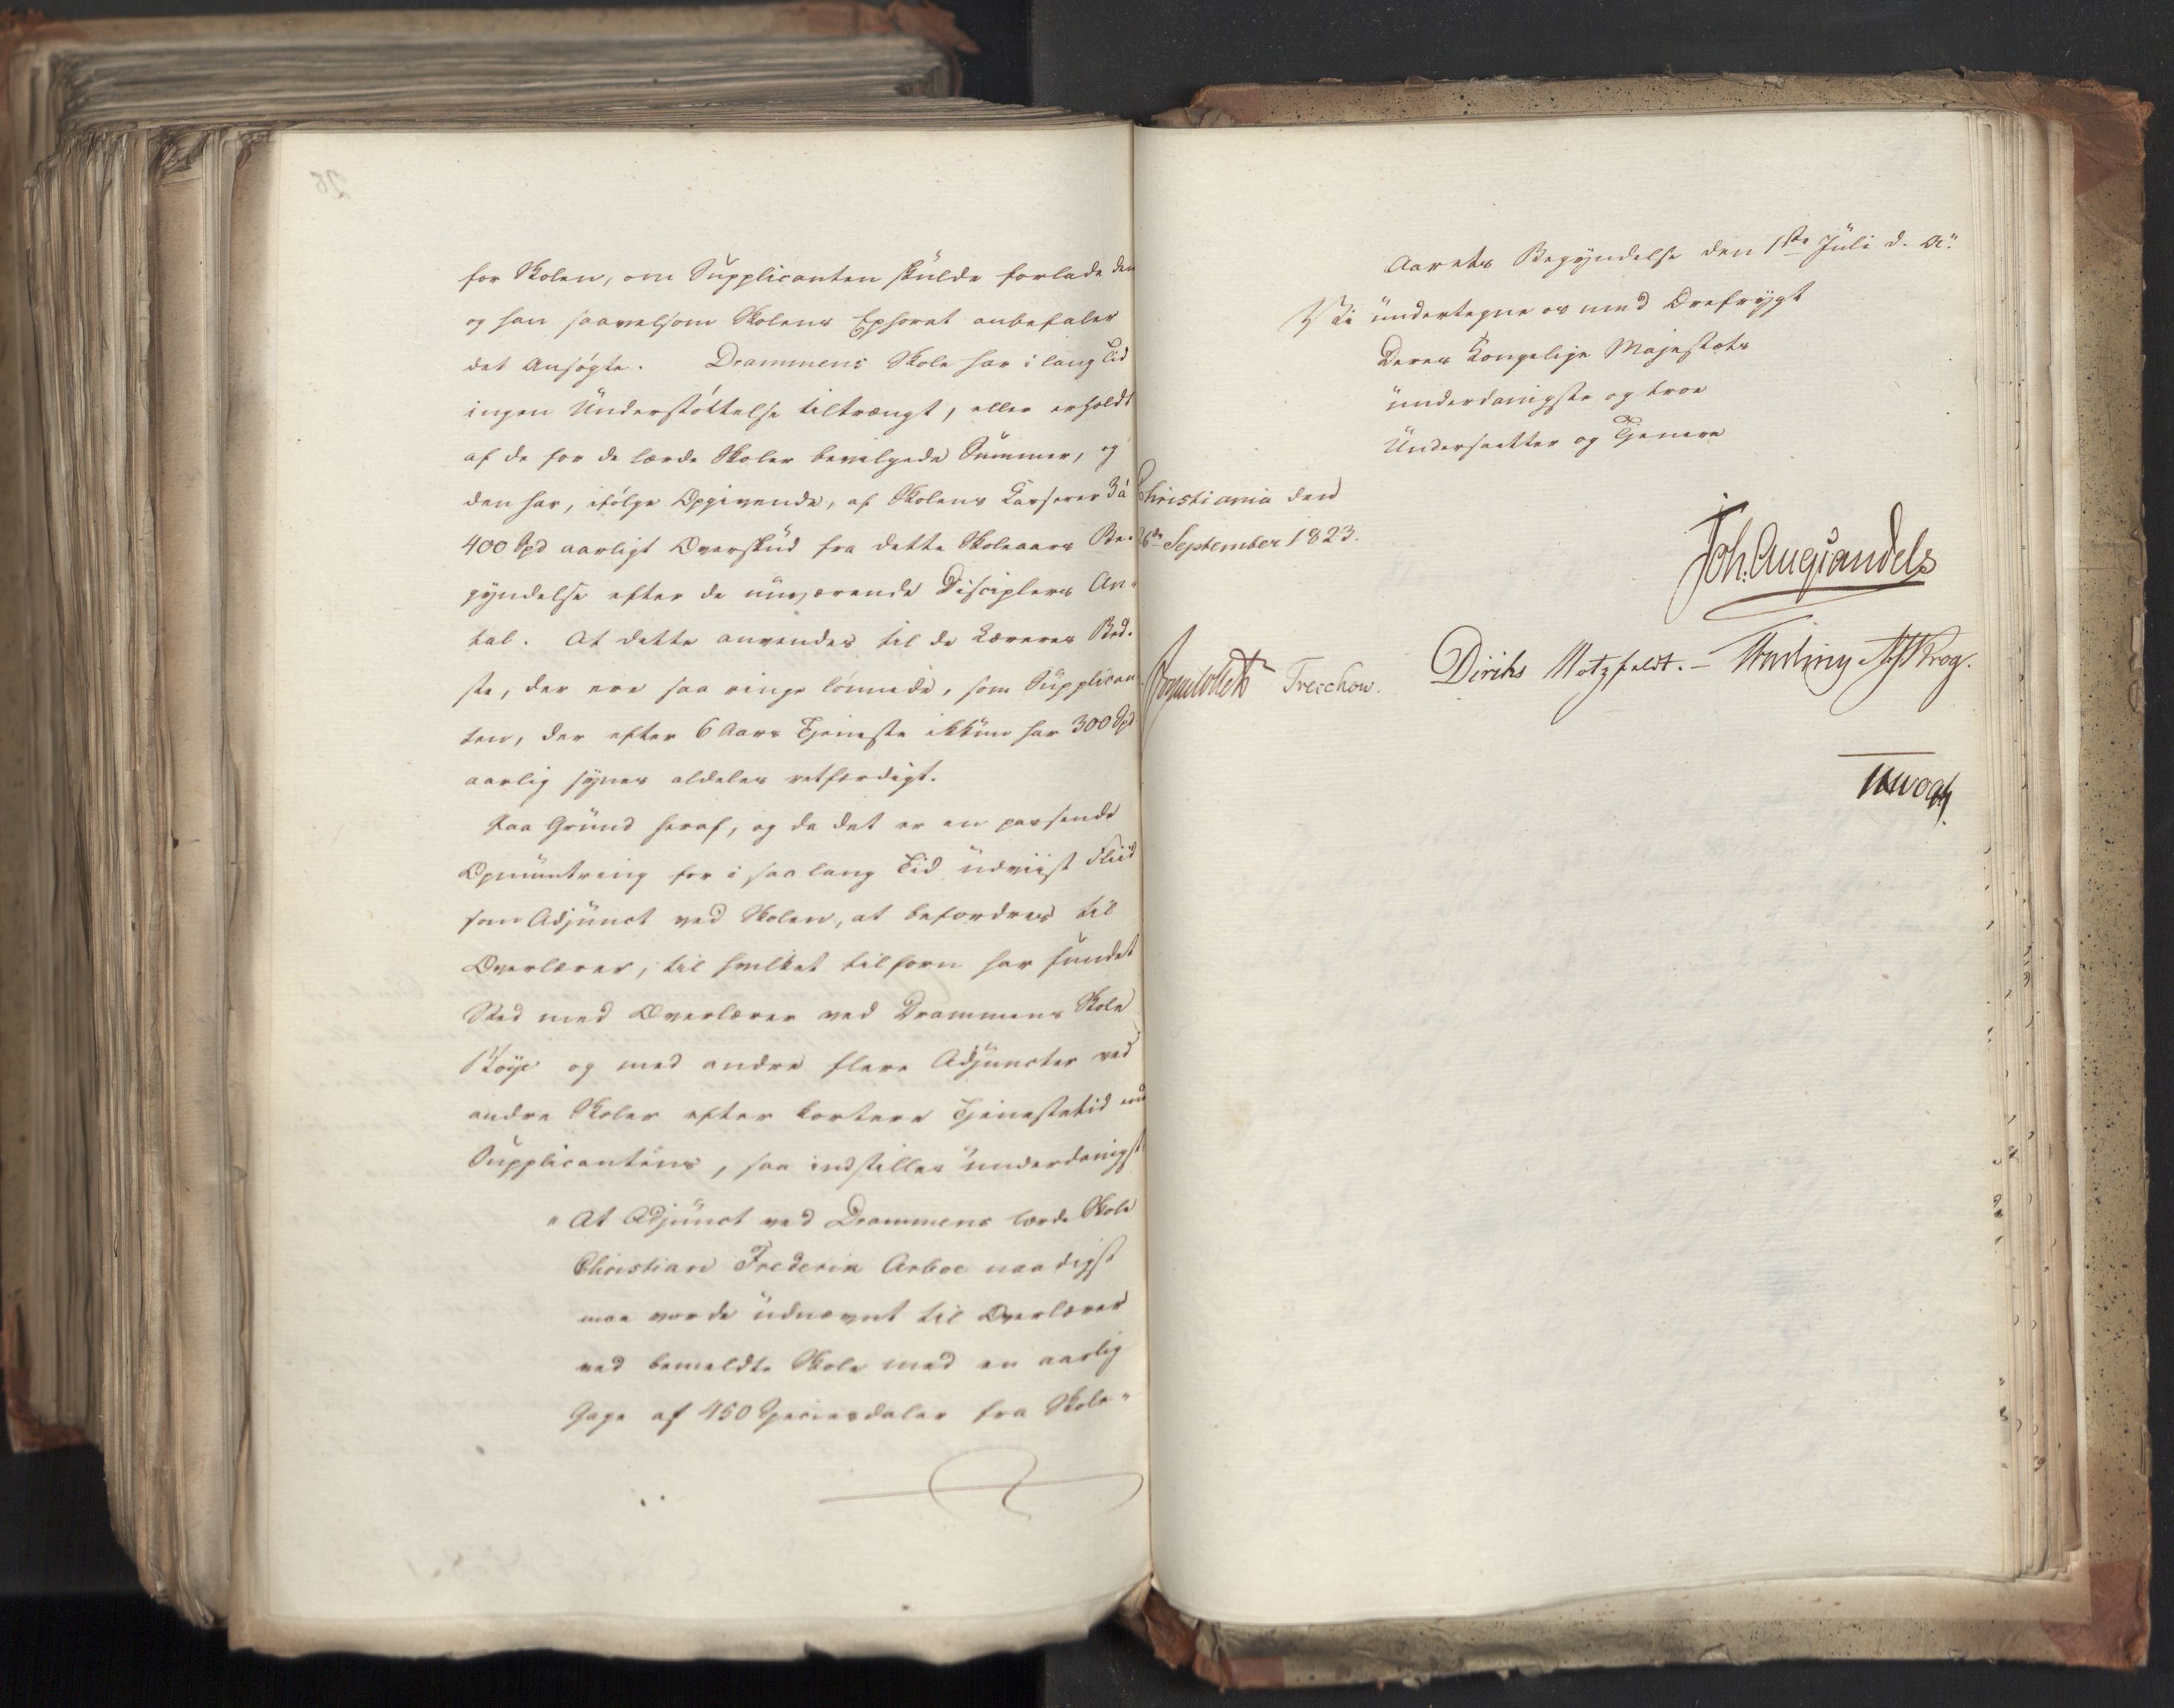 for Skolen, om Supplicanten skulde forlade den
og han saavelsom Skolens Ephorat anbefaler
det Ansøgte. Drammens Skole har i lang Tid
ingen Understøttelse tiltrængt, eller erholdt
af de for de lærde Skoler bevilgede Summer, og
den har, ifølge Opgivende, af Skolens Casserer 3 à
400 Spd aarligt Overskud fra dette Skoleaars Be-
gyndelse efter de nuværende Disciplers An-
tal. At dette anvendes til de Læreres Bed-
ste, der ere saa ringe lønnede, som Supplican-
ten, der efter 6 Aars Tjeneste ikkun har 300 Spd
aarlig synes aldeles retfærdigt.
Paa Grund heraf, og da det er en passende
Opmuntring for i saa lang Tid udviist Fliid
som Adjunct ved Skolen, at befordres til
Overlærer, til hvilket tilforn har fundet
Sted med Overlærer ved Drammens Skole
og med andre flere Adjuncter ved
andre Skoler efter kortere Tjenestetid end
Supplicantens, saa indstilles underdanigst
"At Adjunct ved Drammens lærde Skole
Christian Frederik Arboe naadigst
maa vorde udnævnt til Overlærer
ved bemeldte Skole med en aarlig
Gage af 450 Speciesdaler fra Skole-
Aarets Begyndelse den 1ste Juli d. A."
Vi undertegne os med Ærefrygt
Deres Kongelige Majestæts
underdanigste og troe
Undersaatter og Tjenere
Christiania den
26de September 1823.
Joh. Aug. Sandels
Sommerhielm Treschow. Diriks Motzfeldt. Krog.